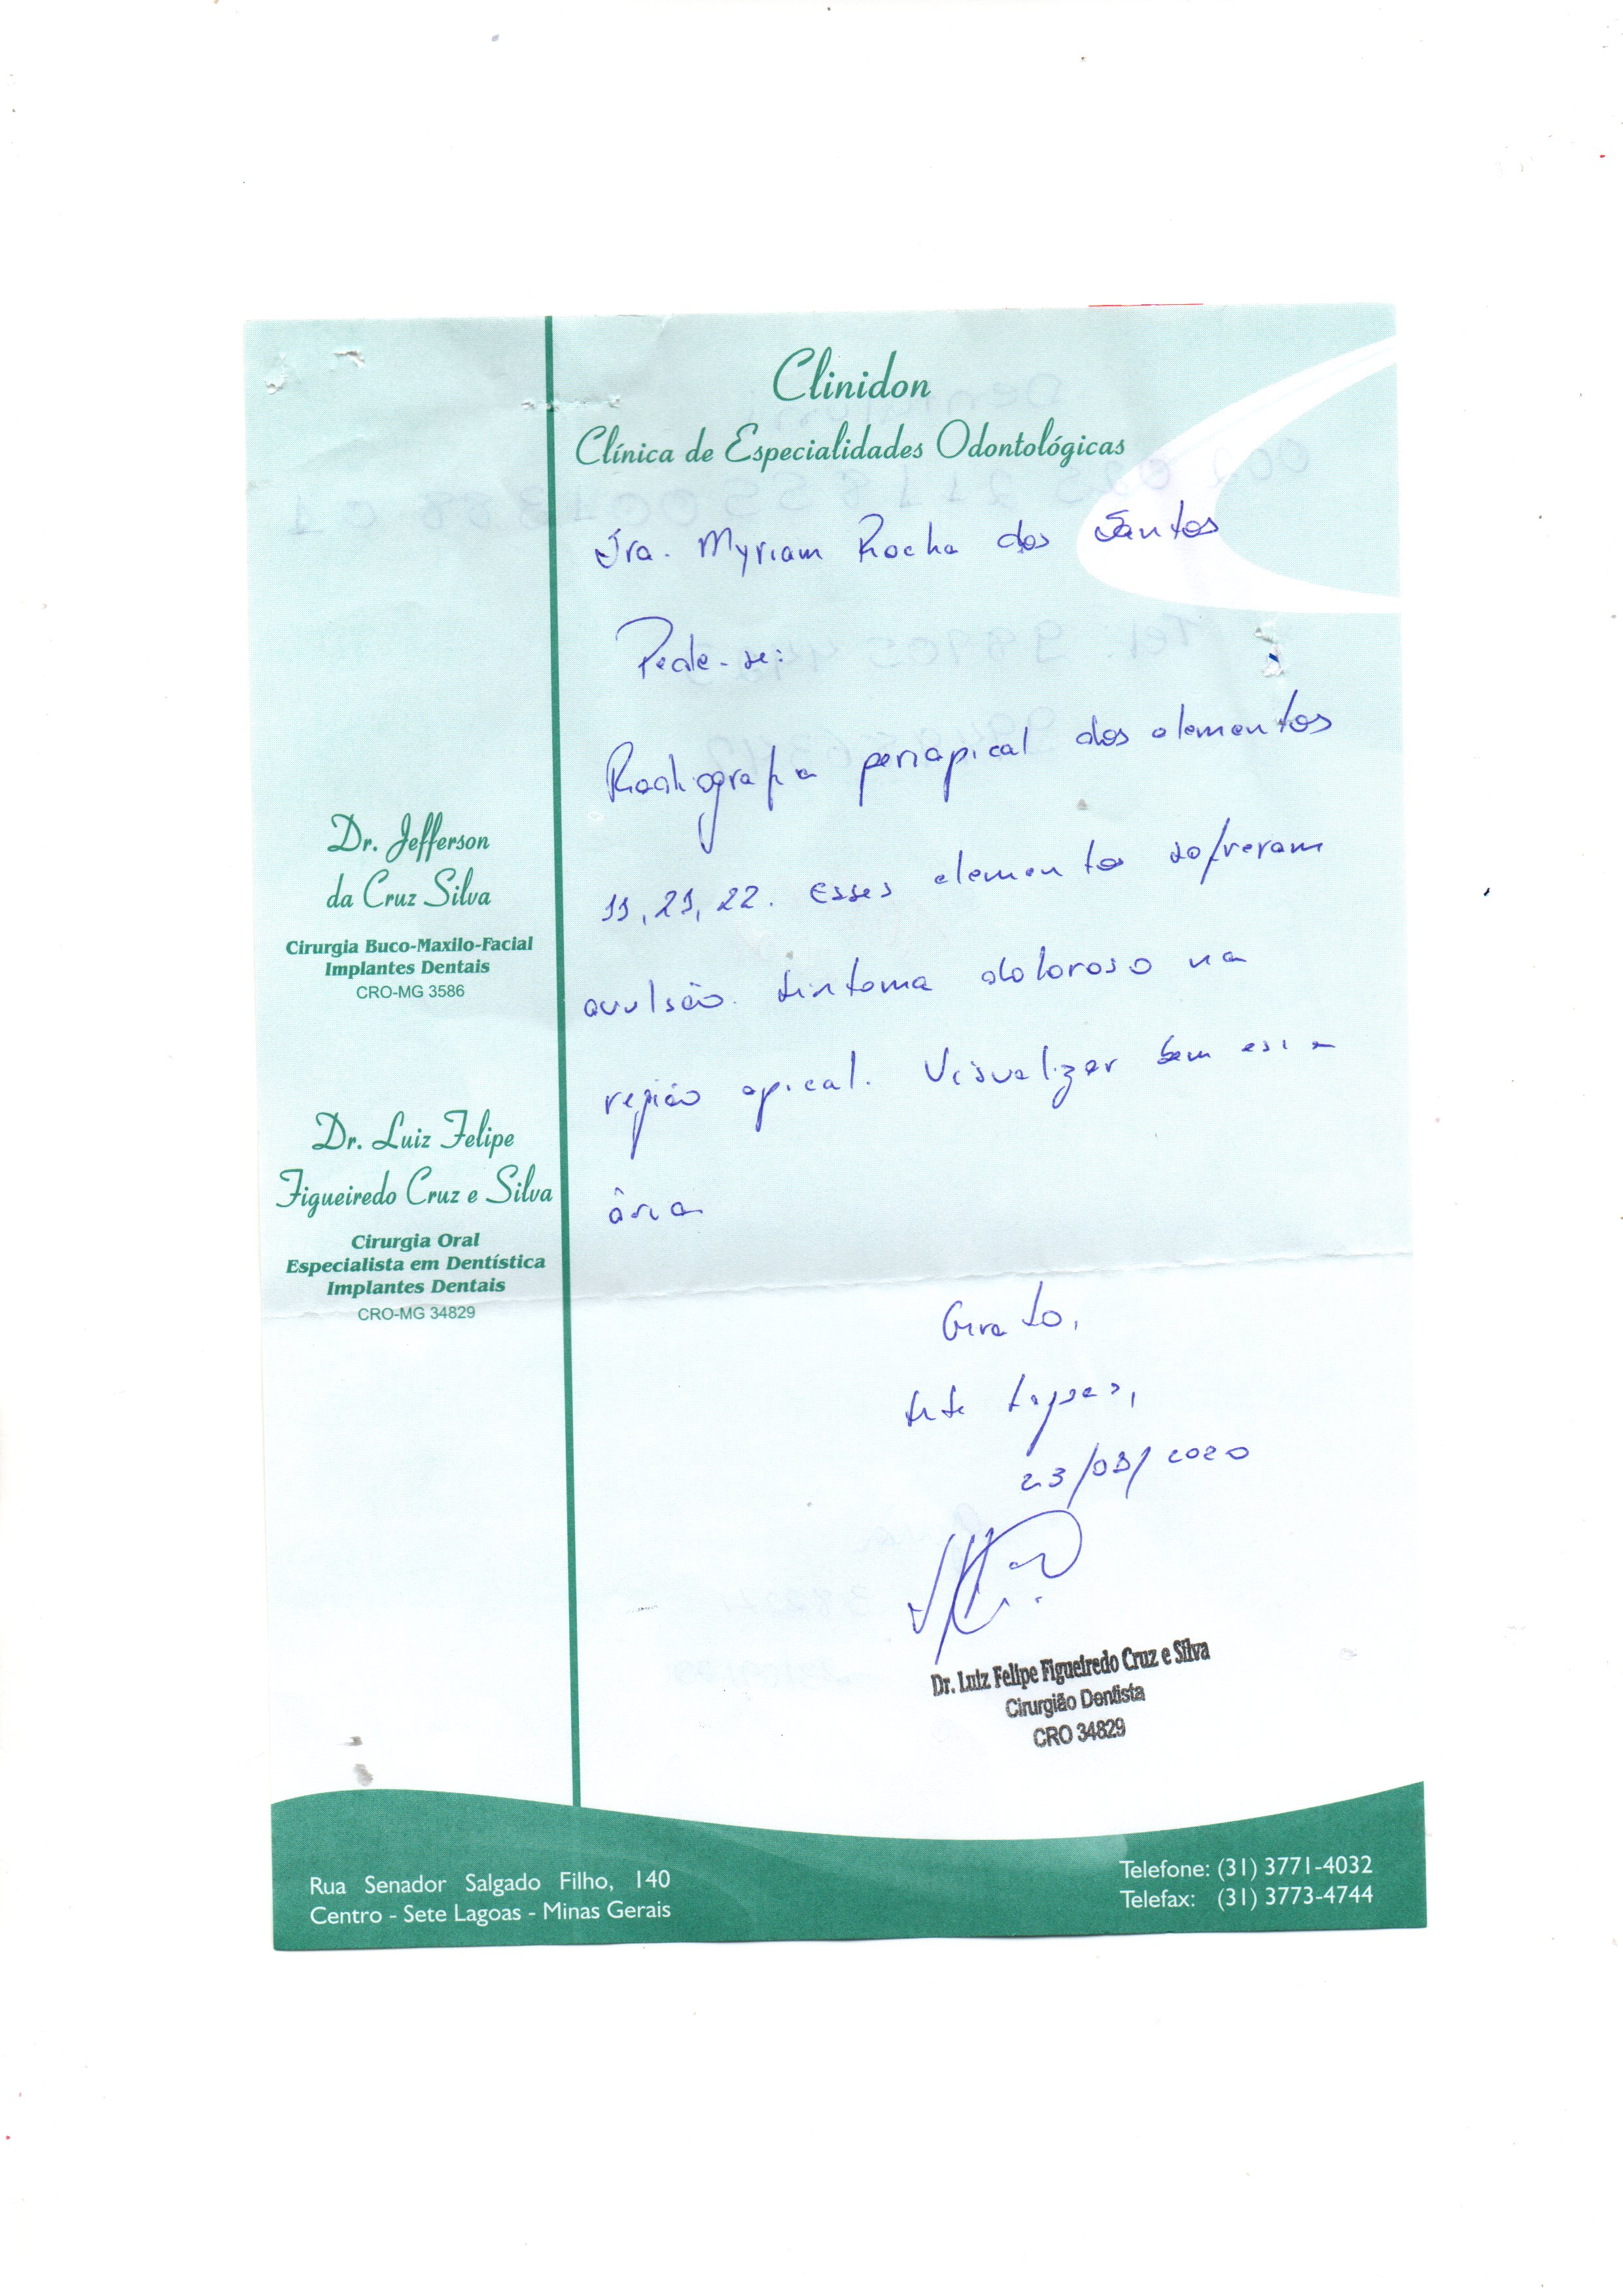 Clinidon
Clínica de Especialidades Odontológicas
Sra. Myriam Rocha dos Santos
Pede-se:
Radiografia periapical dos elementos
11, 21, 22. Esses elementos sofreram
avulsão. Sintoma doloroso na
região apical. Visualizar bem essa
área
Grato,
Sete Lagoas,
23/03/2020
Dr. Luiz Felipe Figueiredo Cruz e Silva
Cirurgião Dentista
CRO 34829
Dr. Jefferson
da Cruz Silva
Cirurgia Buco-Maxilo-Facial
Implantes Dentais
CRO-MG 3586
Dr. Luiz Felipe
Figueiredo Cruz e Silva
Cirurgia Oral
Especialista em Dentística
Implantes Dentais
CRO-MG 34829
Rua Senador Salgado Filho, 140
Centro - Sete Lagoas - Minas Gerais
Telefone: (31) 3771-4032
Telefax: (31) 3773-4744